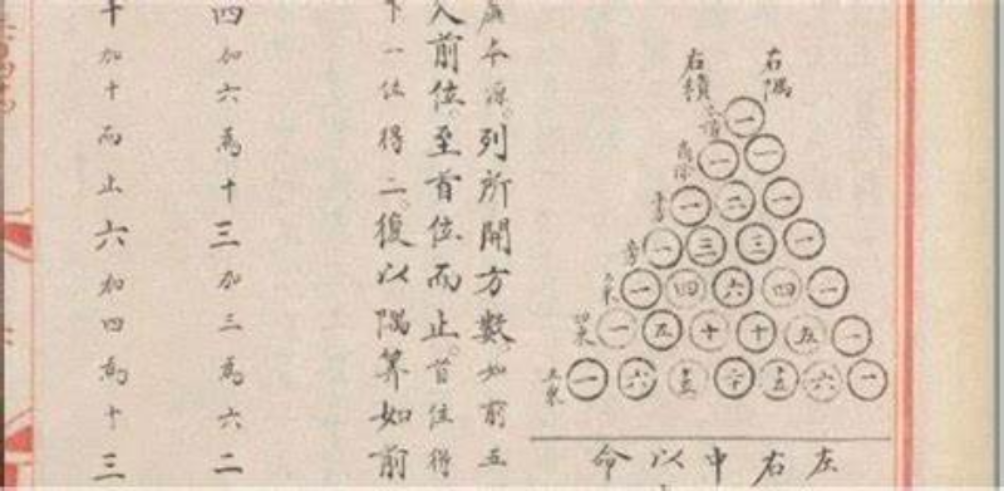 右隅
右積
一
一 一
一 二 一
一 三 三 一
一 四 六 四 一
一 五 十 十 五 一
一 六 十五 二十 十五 六 一
左右中以命
本源。列所開方數如前五
入前位。至首位而止。首位得
下一位得二。復以隅算如前
四加六為十三加三為六二
十加十而止六加四為十三